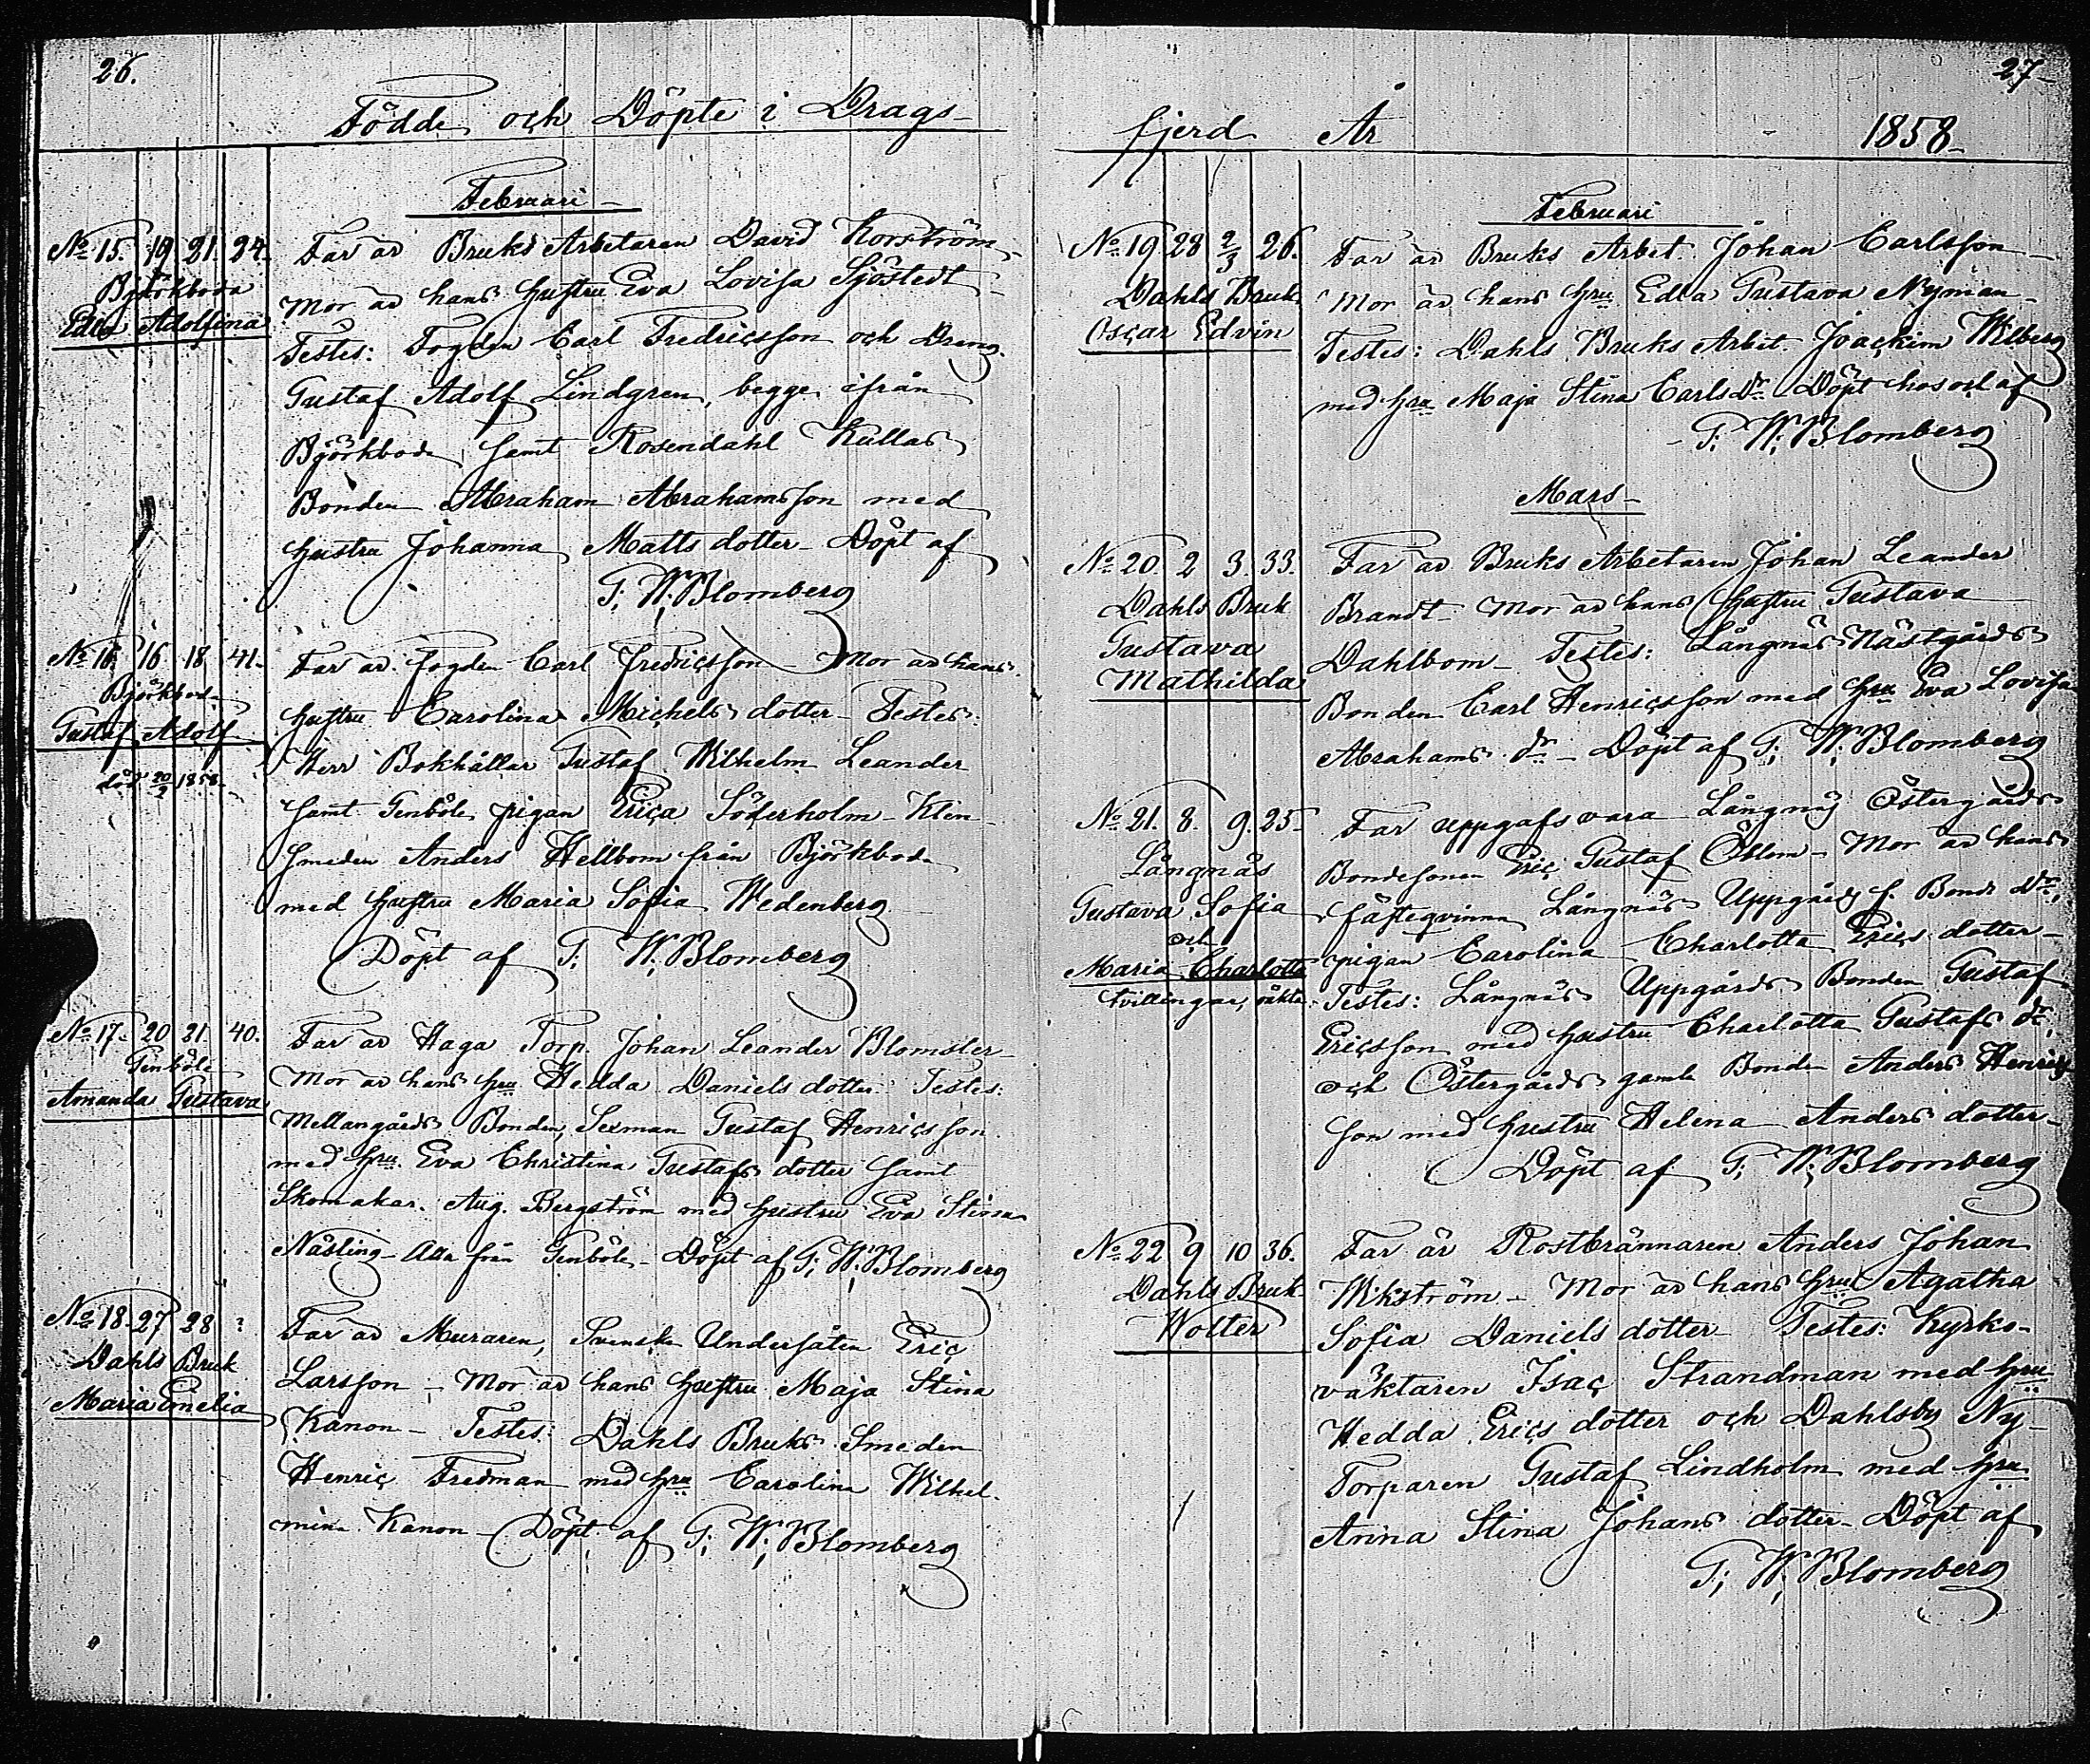 26.
Födde och Döpte i Drags-
Februari
No 15. 19 21. 24.
Björkboda
Edla Adolfina
Far är Bruks Arbetaren David Korström
Mor är hans hustru Eva Lovisa Sjöstedt
Testes: Fogden Carl Fredricsson och Dreng.
Gustaf Adolf Lindgren, begge ifrån
Björkboda samt Rosendahl Kullas
Bonden Abraham Abrahamsson med
hustru Johanna Matts dotter - Döpt af
G; W; Blomberg
No 16. 16 18 41.
Björkboda
Gustaf Adolf
död 20/2 1858.
Far är fogden Carl Fredricsson - Mor är hans
hustru Carolina Michels dotter - Testes:
Herr Bokhållar Gustaf Wilhelm Leander
samt Genböle pigan Erica Söderholm - Klen-
smeden Anders Hellbom från Björkboda
med hustru Maria Sofia Wedenberg
Döpt af G; W; Blomberg
No 17. 20 21. 40.
Genböle
Amanda Gustava
Far är Haga Torp. Johan Leander Blomster-
Mor är hans hru Hedda Daniels dotter. Testes:
Mellangårds Bonden, Sexman Gustaf Henricsson
med hru. Eva Christina Gustafs dotter samt
Skomakar. Aug. Bergström med hustru Eva Stina
Nåsling - Alla från Genböle - Döpt af G; W; Blomberg
No 18. 27 28 ?
Dahls Bruk
Maria Emelia
Far är Muraren, Svenska Undersåten Eric
Larsson - Mor är hans hustru Maja Stina
Kanon - Testes: Dahls Bruks Smeden
Henric Fredman med hru Carolina Wilhel-
mina Kanon - Döpt af G; W; Blomberg
27-
fjerd År 1858-
Februari
No 19. 28 2/3 26.
Dahls Bruk
Oscar Edvin
Far är Bruks Arbet. Johan Carlsson
Mor är hans hru Edla Gustava Nyman -
Testes: Dahls Bruks Arbet. Joackim Wilberg
med hru Maja Stina Carls Dr Döpt hos oss af
- G; W; Blomberg
Mars -
No 20. 2 3. 33.
Dahls Bruk
Gustava
Mathilda
Far är Bruks Arbetaren Johan Leander
Brandt - Mor är hans hustru Gustava
Dahlbom - Testes: Långnäs Nästgårds
Bonden Carl Henricsson med hru Eva Lovisa
Abrahams dr - Döpt af G; W; Blomberg
No 21. 8. 9. 25-
Långnäs
Gustava Sofia
och
Maria Charlotta
tvillingar, oäkta.
Far uppgafs vara Långnäs Östergårds
Bondesonen Eric Gustaf Öblom - Mor är hans
fästeqvinna Långnäs Uppgårds f. Bonde Dr,
pigan Carolina Charlotta Erics dotter -
Testes: Långnäs Uppgårds Bonden Gustaf
Ericsson med hustru Charlotta Gustafs dr,
och Östergårds gamla Bonden Anders Henrics
son med hustru Helena Anders dotter -
Döpt af G; W; Blomberg
No 22 9 10 36.
Dahls Bruk
Wolter
Far är Rostbrännaren Anders Johan
Wikström - Mor är hans hru Agatha
Sofia Daniels dotter - Testes: Kyrko-
väktaren Isac Strandman med hru
Hedda Erics dotter och Dahlsby Ny-
Torparen Gustaf Lindholm med hru
Anna Stina Johans dotter - Döpt af
G; W; Blomberg